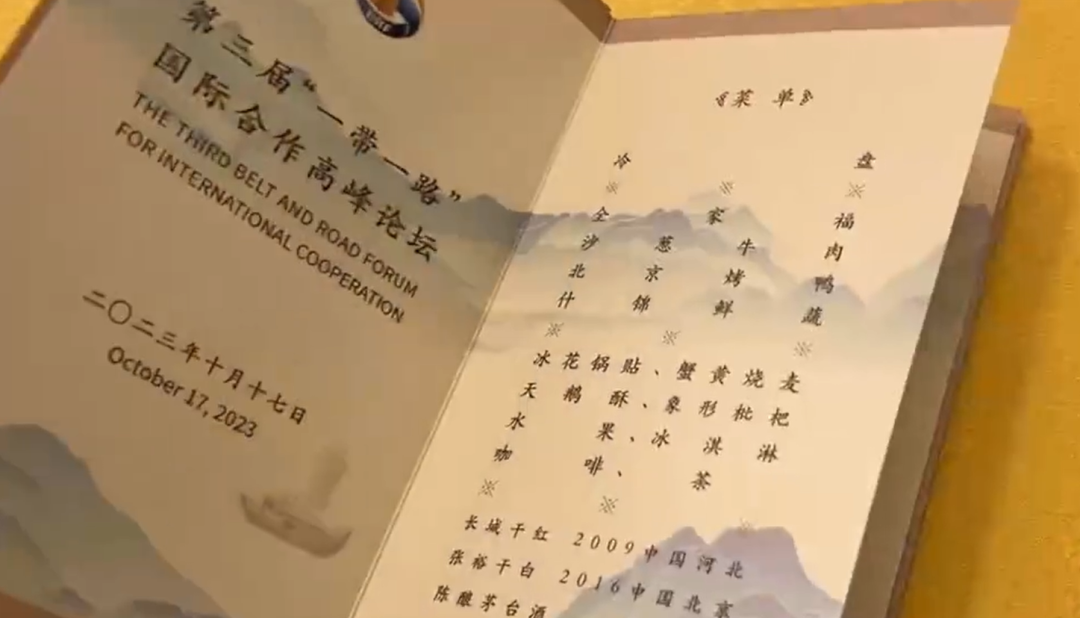 第三届“一带一路”
国际合作高峰论坛
THE THIRD BELT AND ROAD FORUM
FOR INTERNATIONAL COOPERATION
二〇二三年十月十七日
October 17, 2023
《菜 单》
冷 盘
※ ※ ※
全 家 福
沙 葱 牛 肉
北 京 烤 鸭
什 锦 鲜 蔬
※ ※ ※
冰 花 锅 贴 、 蟹 黄 烧 麦
天 鹅 酥 、 象 形 枇 杷
水 果 、 冰 淇 淋
咖 啡 、 茶
※ ※ ※
长城干红 2009 中国河北
张裕干白 2016 中国北京
陈酿茅台酒